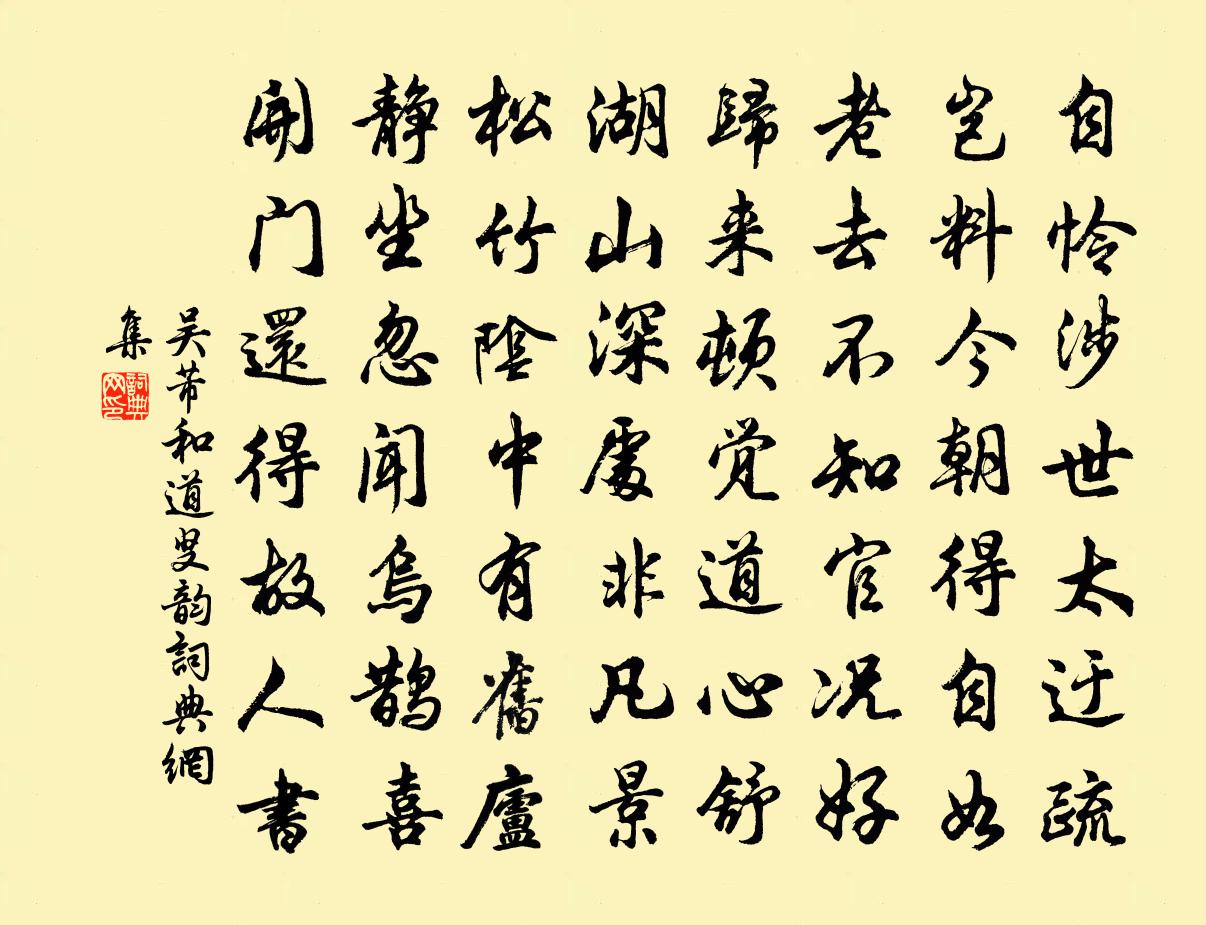 自怜涉世太迂疏
岂料今朝得自如
老去不知官况好
歸来顿觉道心舒
湖山深處非凡景
松竹陰中有舊廬
静坐忽闻烏鹊喜
開门還得故人書
吴芾和道叟韵詞典網
集
詞典
网印